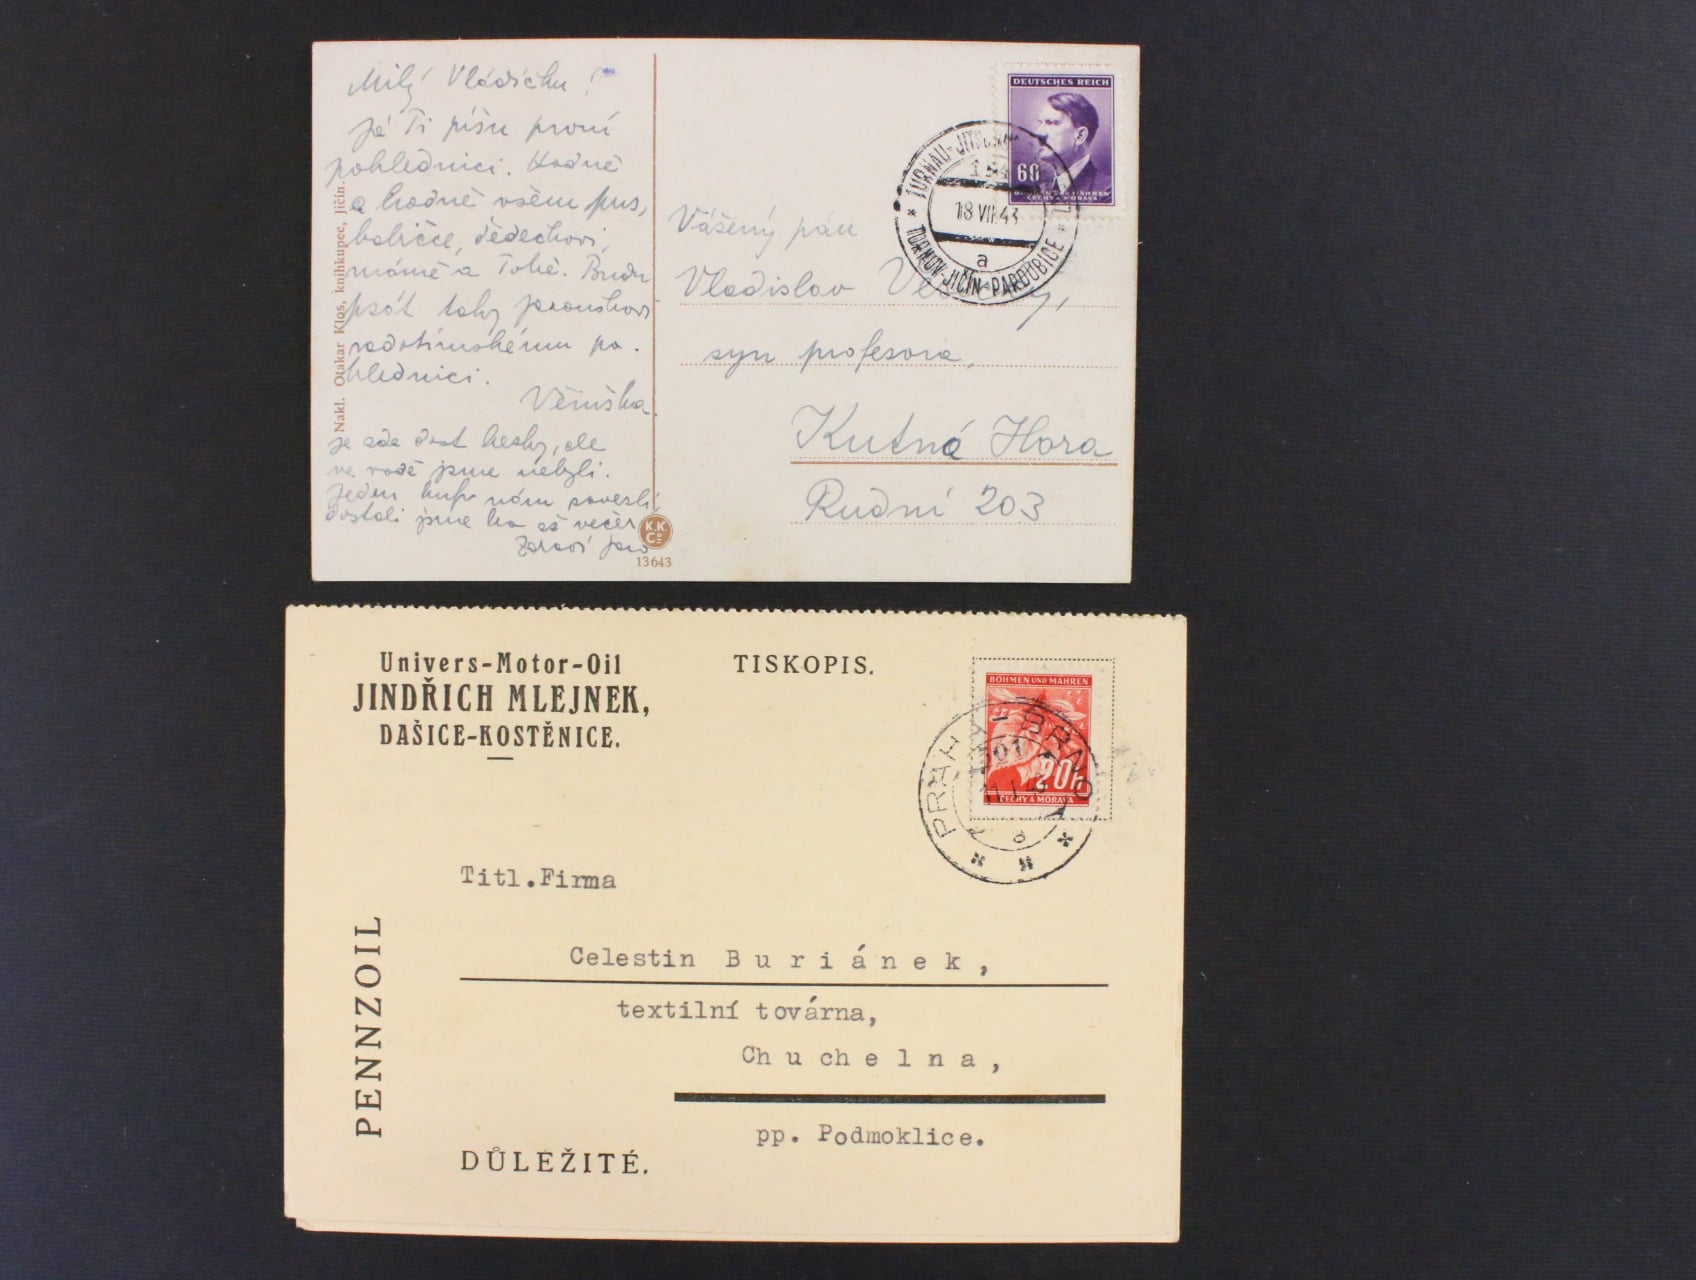 Milý Vládíčku!
já Ti píšu první
pohlednici. Hodně
a hodně všem pus,
babičce, dědečkovi,
mámě a Tobě. Budu
psát taky
radotínskému po-
hlednici.
Věruška.
je zde dost hezky, ale
ve vodě jsme nebyli.
Jeden kufr nám
dostali jsme ho až večer
Zdraví
Nakl. Otakar Klos, knihkupec, Jičín.
K.K.
Co
13643
DEUTSCHES REICH
60
BÖHMEN UND MÄHREN
ČECHY A MORAVA
TURNAU-JITSCHIN
18 VII 43
a
TURNOV-JIČÍN-PARDUBICE
XI
Vážený pán
Vladislav
syn profesora,
Kutná Hora
Rudní 203
Univers-Motor-Oil
JINDŘICH MLEJNEK,
DAŠICE-KOSTĚNICE.
TISKOPIS.
BÖHMEN UND MÄHREN
20h
ČECHY A MORAVA
PRAHA-BRNO
Titl.Firma
Celestin Buriánek,
textilní továrna,
Chuchelna,
pp. Podmoklice.
PENNZOIL
DŮLEŽITÉ.